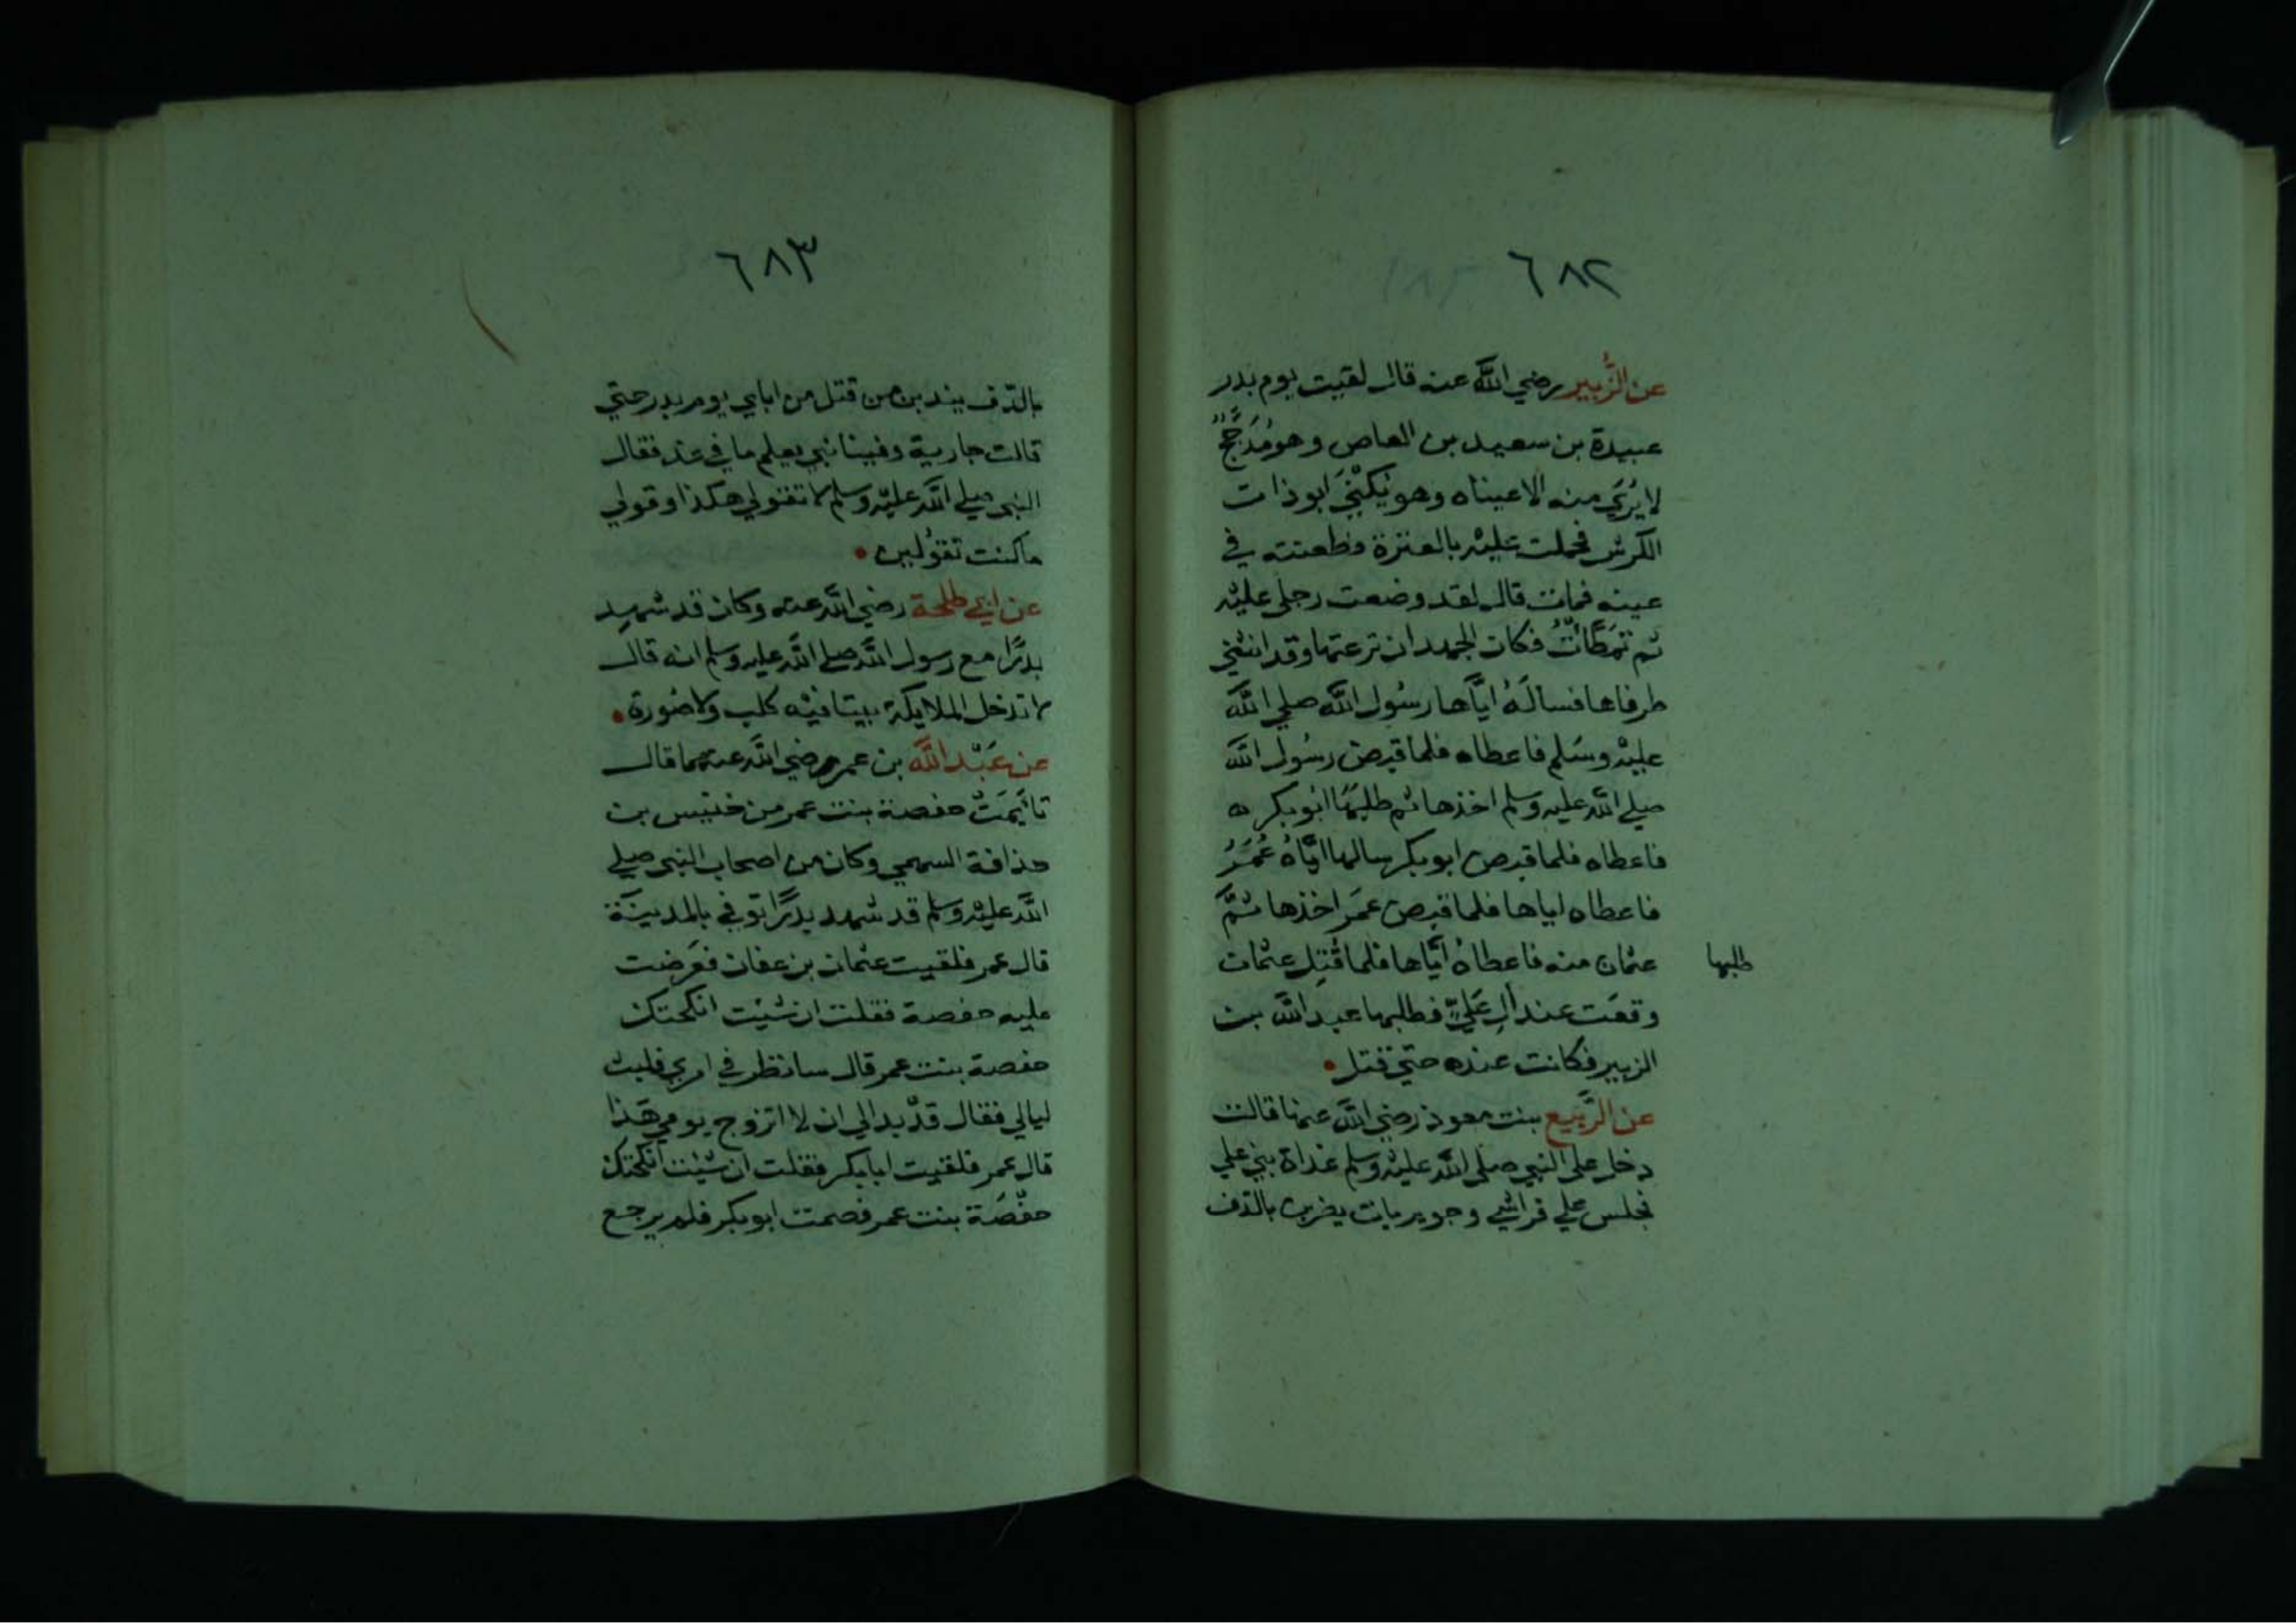 ٦٨٢
عن الزُّبير رضي الله عنه قال لقيت يوم بدر
عبيدة بن سعيد بن العاص وهو مُدَجَّجٌ
لا يُرَى منه الا عيناه وهو يُكْنَى ابو ذات
الكرش فحملت عليه بالعنزة فطعنته في
عينه فمات قال لقد وضعت رجلي عليه
ثم تمَطَّاتُ فكان الجهد ان نزعتها وقد انثني
طرفاها فسالَهُ ايَّاها رسُول الله صلي الله
عليه وسَلم فاعطاه فلما قبض رسُول الله
صلي الله عليه وسلم اخذها ثم طلبهَا ابُو بكر ه
فاعطاه فلما قبض ابو بكر سالها ايَّاهُ عُمَرُ
فاعطاه اياها فلما قبض عمَر اخذها ثمَّ
طلبها
عثمان منه فاعطاهُ ايَّاها فلما قُتِل عثمان
وقعَت عند الِ عَلِيٍّ فطلبها عبد الله بن
الزبير فكانت عنده حتي قتل •
عن الرُّبَيع بنت معوذ رضي الله عنها قالت
دخل على النبي صلى الله عليه وسلم غداة بني علي
فجلس علي فراشي وجويريات يضربن بالدف
٦٨٣
بالدّف يندبن من قتل من اباي يوم بدر حتي
قالت جارية وفينا نبي يعلم ما في غد فقال
النبي صلي الله عليه وسلم لا تقولي هكذا وقولي
ما كنت تقُولين •
عن ابي طلحة رضي الله عنه وكان قد شهد
بدرًا مع رسول الله صلي الله عليه وسلم انه قال
لا تدخل الملايكة بيتا فيْه كلب ولا صُورة •
عن عَبْد الله بن عمر رضي الله عنهما قال
تايَّمَتْ حفصة بنت عمر من خنيس بن
حذافة السهمي وكان من اصحاب النبي صلي
الله عليه وسلم قد شهد بدرًا توفي بالمدينة
قال عمر فلقيت عثمان بن عفان فعَرضت
عليه حفصة فقلت ان شيت انكحتك
حفصة بنت عمر قال سانظر في امري فلبث
ليالي فقال قدْ بدا لي ان لا اتزوج يومي هَذا
قال عمر فلقيت ابا بكر فقلت ان شئت انكحتك
حفْصَة بنت عمر فصمت ابو بكر فلم يرجع